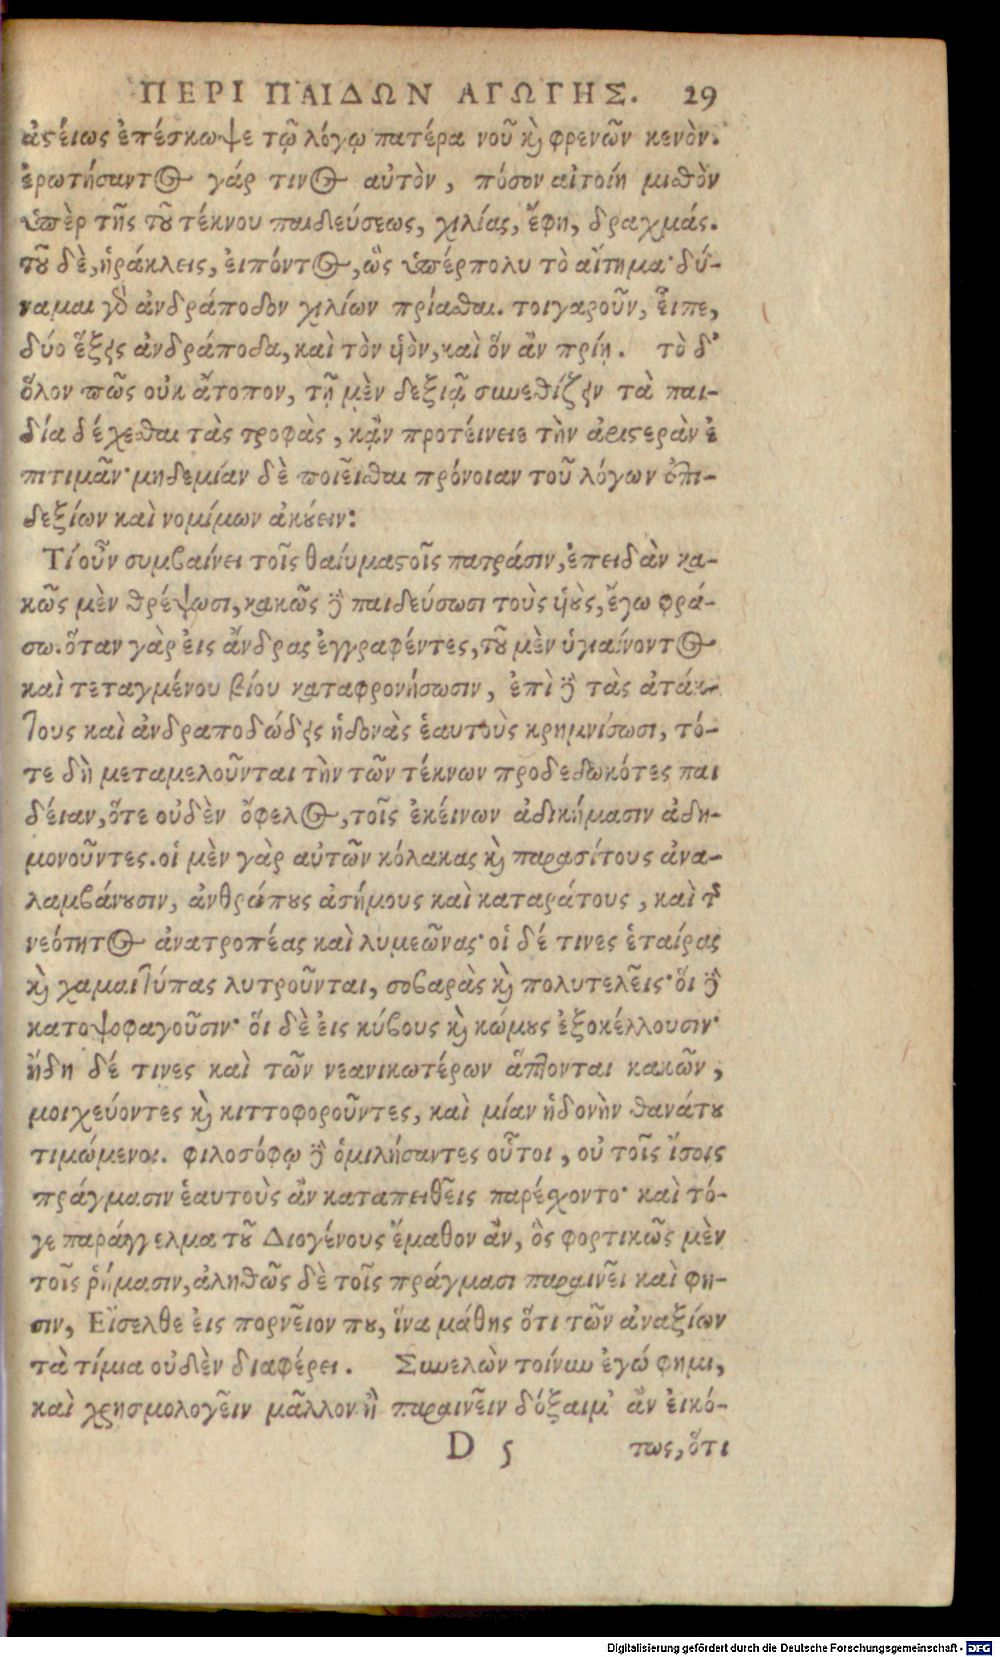 ΠΕΡΙ ΠΑΙΔΩΝ ΑΓΩΓΗΣ. 29
ἀστείως ἐπέσκωψε τῷ λόγῳ πατέρα νοῦ κỳ φρενῶν κενὸν.
ἐρωτήσαντος γάρ τινος αὐτὸν, πόσον αἰτοίη μισθὸν
ὑπὲρ τῆς τοῦ τέκνου παιδεύσεως, χιλίας, ἔφη, δραχμάς.
τοῦ δὲ, ἡράκλεις, εἰπόντος, ὡς ὑπέρπολυ τὸ αἴτημα· δύ-
ναμαι γὸ ἀνδράποδον χιλίων πρίασθαι. τοιγαροῦν, εἶπε,
δύο ἕξεις ἀνδράποδα, καὶ τὸν ὑὸν, καὶ ὅν ἂν πρίῃ. τὸ δ'
ὅλον πῶς οὐκ ἄτοπον, τῇ μὲν δεξιᾷ συνεθίζειν τὰ παι-
δία δέχεσθαι τὰς τροφὰς, κᾂν προτείνειε τὴν ἀριστερὰν ἐ
πιτιμᾶν· μηδεμίαν δὲ ποιεῖσθαι πρόνοιαν τοῦ λόγων ἐπι-
δεξίων καὶ νομίμων ἀκούειν:
Τί οὖν συμβαίνει τοῖς θαύμαστοῖς πατράσιν, ἐπειδὰν κα-
κῶς μὲν θρέψωσι, κακῶς δὲ παιδεύσωσι τοὺς ὑοὺς, ἔγω φρά-
σω. ὅταν γὰρ εἰς ἄνδρας ἐγγραφέντες, τοῦ μὲν ὑγιαίνοντος
καὶ τεταγμένου βίου καταφρονήσωσιν, ἐπὶ δὲ τὰς ἀτάκ-
τους καὶ ἀνδραποδώδεις ἡδονὰς ἑαυτοὺς κρημνίσωσι, τό-
τε δὴ μεταμελοῦνται τὴν τῶν τέκνων προδεδωκότες παι
δείαν, ὅτε οὐδὲν ὄφελος, τοῖς ἐκείνων ἀδικήμασιν ἀδη-
μονοῦντες. οἱ μὲν γὰρ αὐτῶν κόλακας κỳ παρασίτους ἀνα-
λαμβάνουσιν, ἀνθρώπους ἀσήμους καὶ καταράτους, καὶ τῆς
νεότητος ἀνατροπέας καὶ λυμεῶνας· οἱ δέ τινες ἑταίρας
κỳ χαμαιτύπας λυτροῦνται, σοβαρὰς κỳ πολυτελεῖς· οἵ δὲ
κατοψοφαγοῦσιν· οἵ δὲ εἰς κύβους κỳ κώμους ἐξοκέλλουσιν·
ἤδη δέ τινες καὶ τῶν νεανικωτέρων ἅπτονται κακῶν,
μοιχεύοντες κỳ κιττοφοροῦντες, καὶ μίαν ἡδονὴν θανάτου
τιμώμενοι. φιλοσόφῳ δὲ ὁμιλήσαντες οὗτοι, οὐ τοῖς ἴσοις
πράγμασιν ἑαυτοὺς ἂν καταπειθεῖς παρέσχοντο· καὶ τό-
γε παράγγελμα τοῦ Διογένους ἔμαθον ἂν, ὃς φορτικῶς μὲν
τοῖς ῥήμασιν, ἀληθῶς δὲ τοῖς πράγμασι παραινεῖ καὶ φη-
σιν, Εἴσελθε εἰς πορνεῖον που, ἵνα μάθης ὅτι τῶν ἀναξίων
τὰ τίμια οὐδὲν διαφέρει. Συνελὼν τοίνυν ἐγώ φημι,
καὶ χρησμολογεῖν μᾶλλον ἢ παραινεῖν δόξαιμ' ἂν εἰκό-
D 5 τως, ὅτι
Digitalisierung gefördert durch die Deutsche Forschungsgemeinschaft - DFG